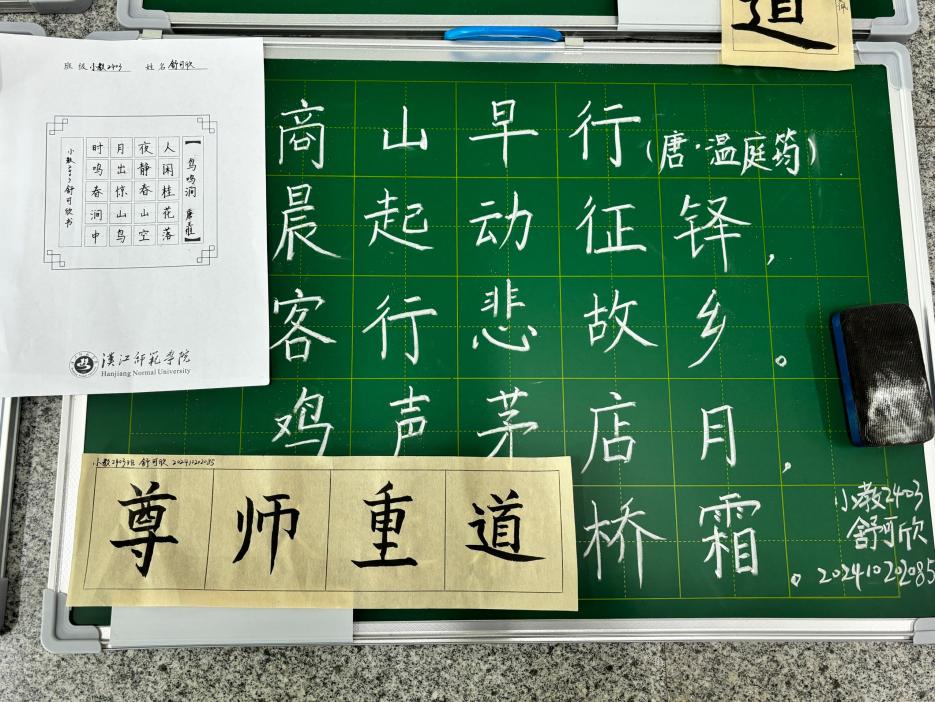 班级 小教2403 姓名 舒可欣
【鸟鸣涧 唐王维】
人闲桂花落
夜静春山空
月出惊山鸟
时鸣春涧中
小教2403舒可欣书
汉江师范学院
Hanjiang Normal University
道
商山早行(唐·温庭筠)
晨起动征铎，
客行悲故乡。
鸡声茅店月，
桥霜。
小教2403
舒可欣
202410202085
小教2403班 舒可欣 202410202085
尊师重道